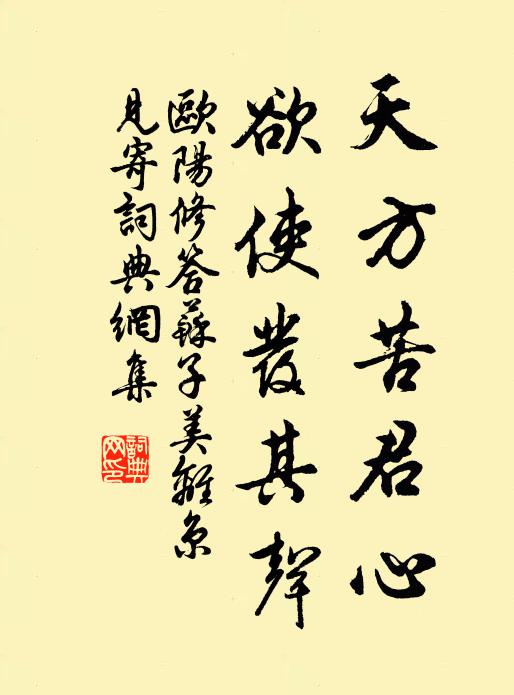 天方苦君心
欲使發其聲
歐陽修答蘇子美離京
見寄詞典網集
詞典
网印